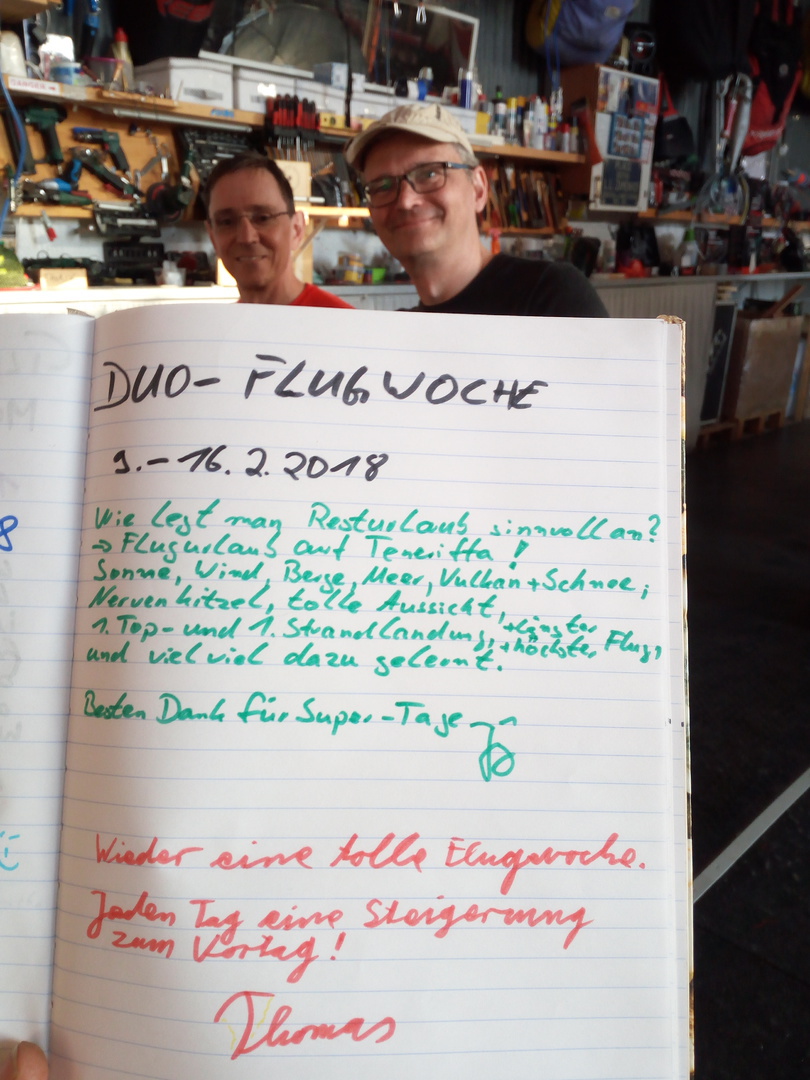 DUO- FLUGWOCHE
9.-16.2.2018
Wie legt man Resturlaub sinnvoll an?
→ Flugurlaub auf Teneriffa!
Sonne, Wind, Berge, Meer, Vulkan + Schnee,
Nervenkitzel, tolle Aussicht,
1. Top- und 1. Strandlandung, +längster +höchster Flug,
und viel viel dazu gelernt.
Besten Dank für Super-Tage
Wieder eine tolle Flugwoche.
Jeden Tag eine Steigerung
zum Vortag!
Thomas